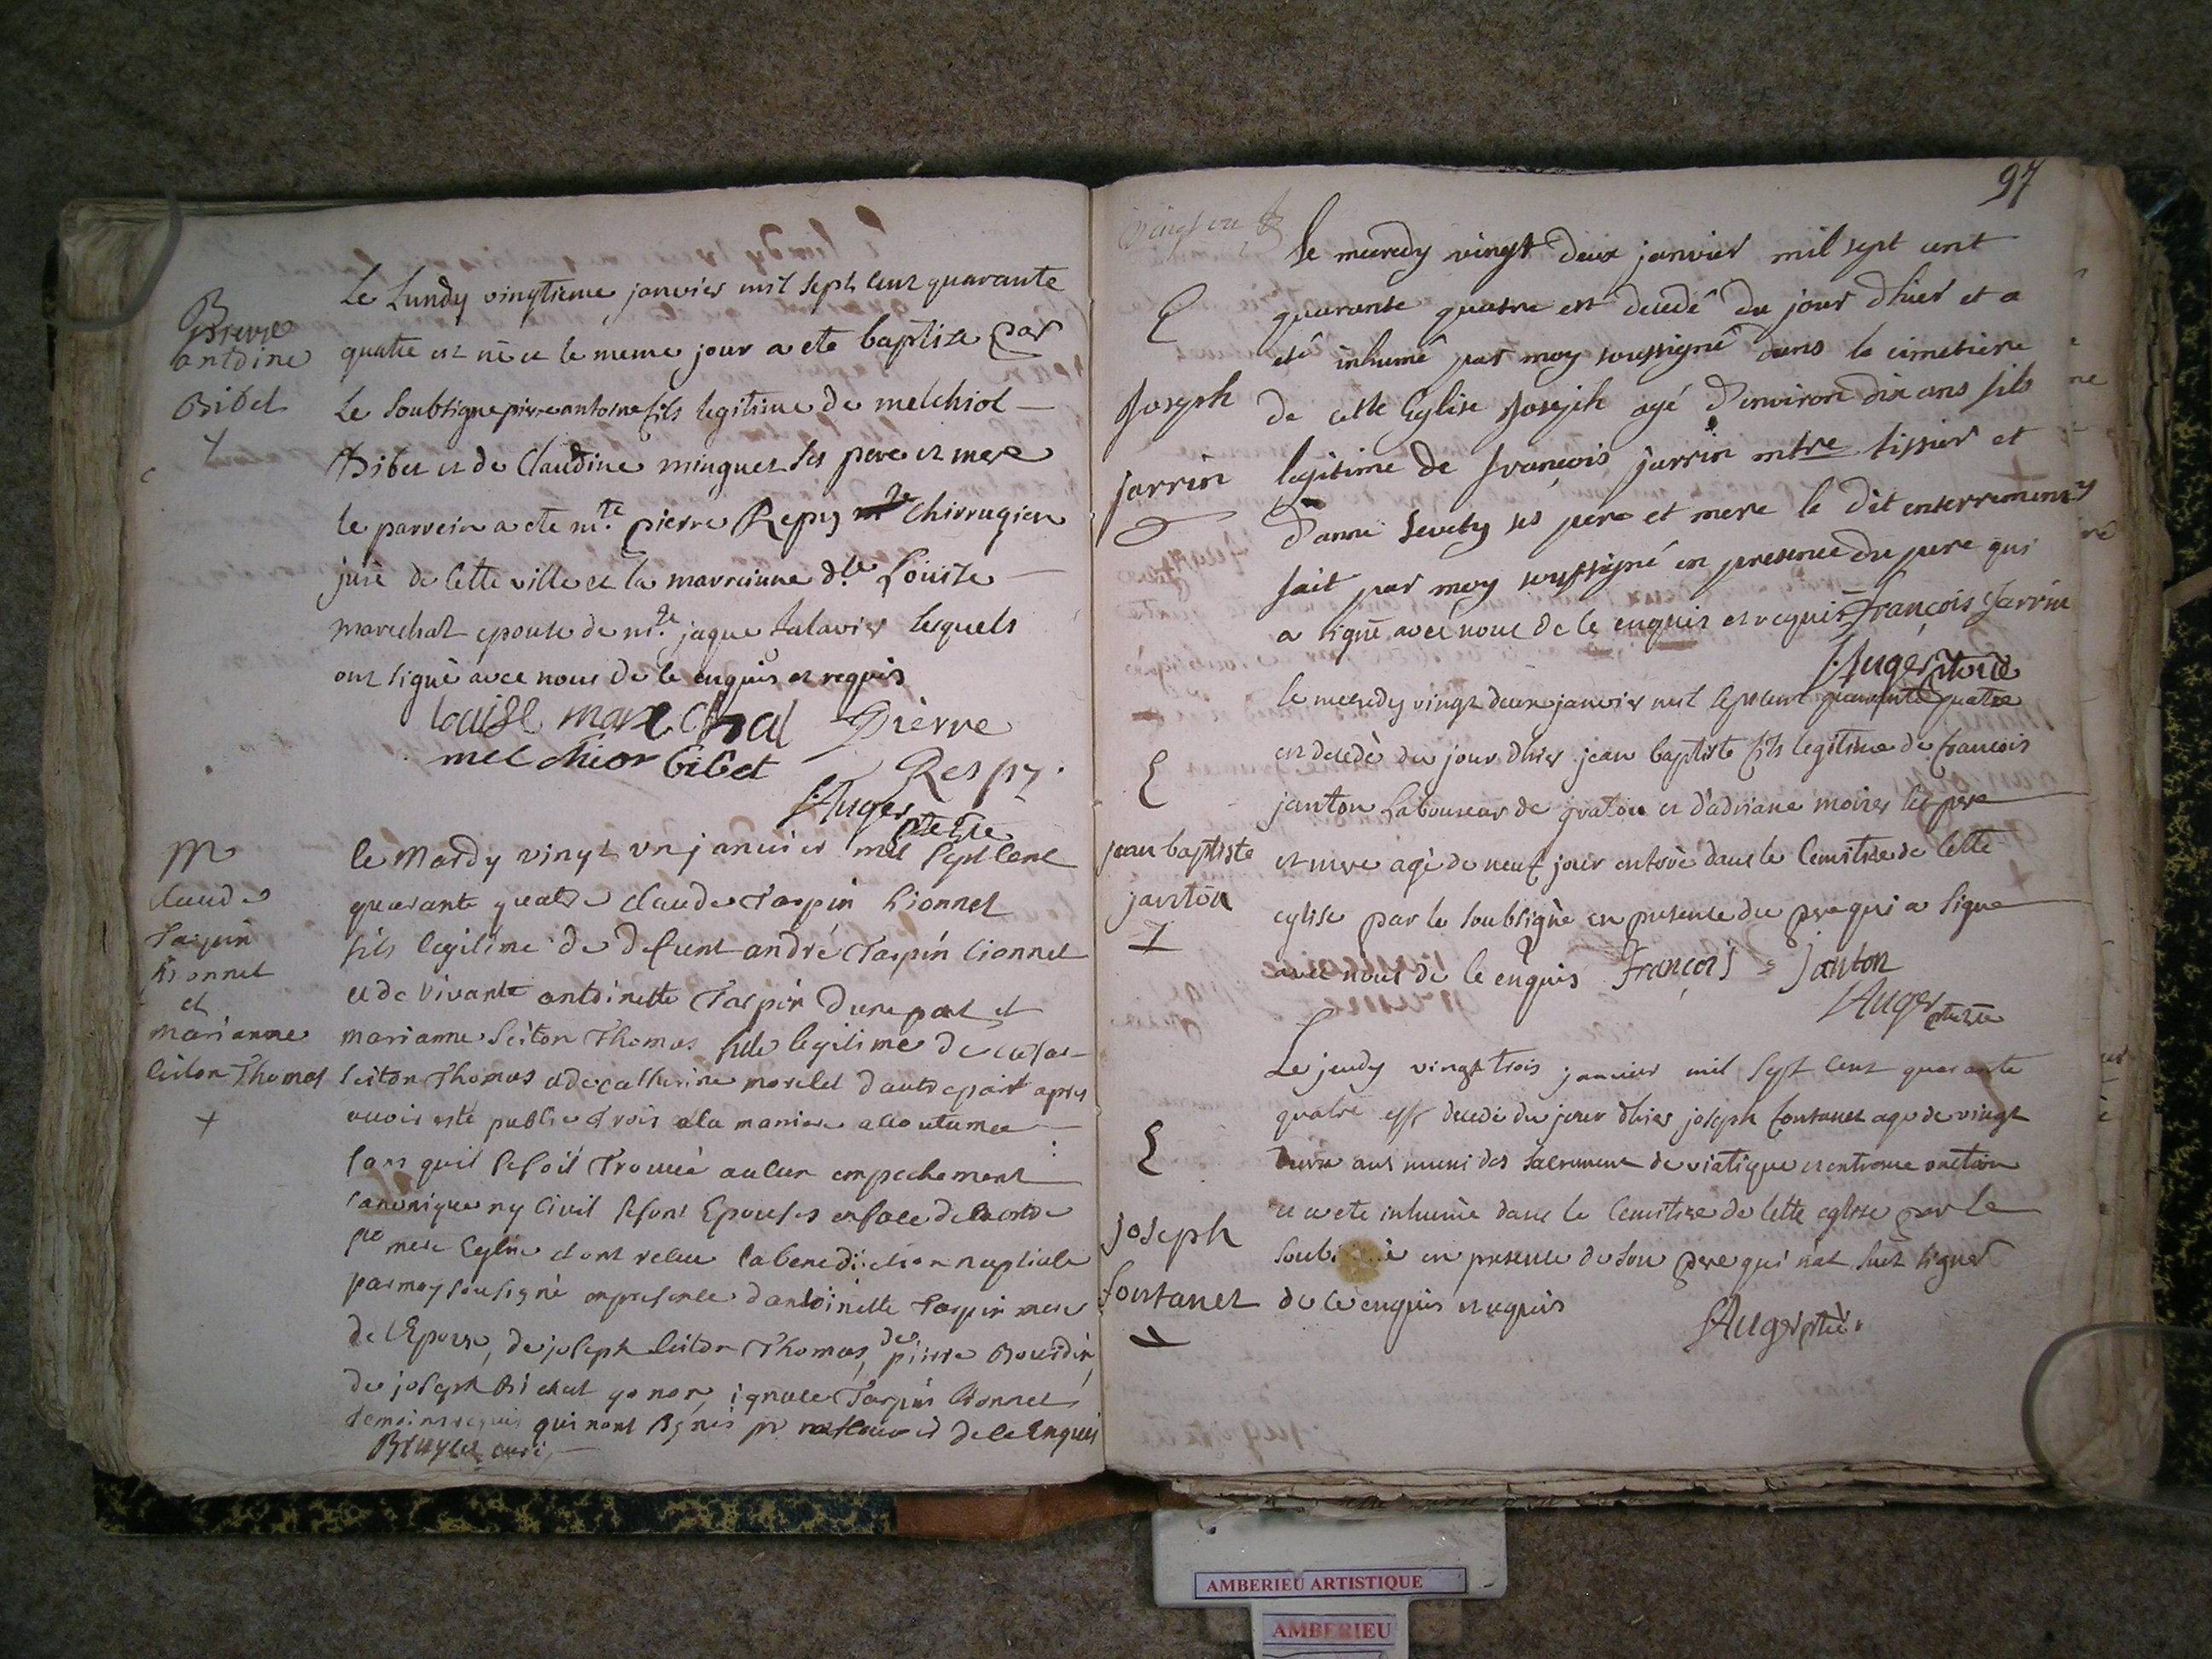 B
pierre
antoine
Bibet
Le Lundy vingtieme janvier mil sept cent quarante
quatre est né et le meme jour a ete baptise par
Le soubsigne pierre antoine fils legitime de melchiol
Bibet et de Claudine minguet ses pere et mere
le parrein a ete mtre pierre Repy chirrugien
juré de cette ville et la marreinne dlle Louise
marechal epouse de mtre jaque talavier lesquels
ont signé avec nous de ce enquis et requis
louise marechal pierre
melchior bibet Respy
Auger ptre
M
claude
Tarpin
Lionnet
et
marianne
Citon Thomas
le Mardy vingt un janvier mil sept cent
quarante quatre claude Tarpin Lionnet
fils legitime de defunt andré Tarpin Lionnet
et de vivante antoinette Tarpin d'une part et
marianne Thomas fille legitime de
Thomas et de catherine morelet d'autre part apres
avoir esté publie trois a la maniere accoutumee
sans quil se soit trouvé aucun empechement
canonique ny civil se sont Epouses en face de
mere Eglise et ont recu la benediction nuptiale
par moy sousigné en presence d'antoinette Tarpin mere
de l'Epoux, de joseph Thomas, de pierre Bourdin,
de joseph gonon, ignace Tarpin Lionnet
temoins requis qui nont signés pr ne scavoir de ce Enquis
curé
97
E
Joseph
jarrin
le mecredy vingt deux janvier mil sept cent
quarante quatre est decedé du jour d'hier et a
eté inhumé par moy soussigné dans le cimetiere
de cette Eglise Joseph agé d'environ dix ans fils
legitime de françois jarrin mtre tissier et
d'anne ses pere et mere le dit enterrement
fait par moy soussigné en presence du pere qui
a signé avec nous de ce enquis et requis françois Jarrin
Auger ptre
E
jean baptiste
janton
le mecredy vingt deux janvier mil sept cent quarante quatre
est decedé du jour d'hier jean baptiste fils legitime de francois
janton Laboureur de et d'adriane moirer ses pere
et mere agé de neuf jour enterré dans le cemitire de cette
eglise par le soubsigné en presence du pere qui a signe
avec nous de ce enquis François Janton
Auger ptre
E
joseph
fontanet
Le jeudy vingt trois janvier mil sept cent quarante
quatre est decedé du jour d'hier joseph fontanet agé de vingt
ans muni des sacrement de viatique et extreme onction
et a ete inhumé dans le cemitire de cette eglise par le
en presence de son pere qui na sut signer
de ce enquis et requis
Auger ptre
AMBERIEU ARTISTIQUE
AMBERIEU